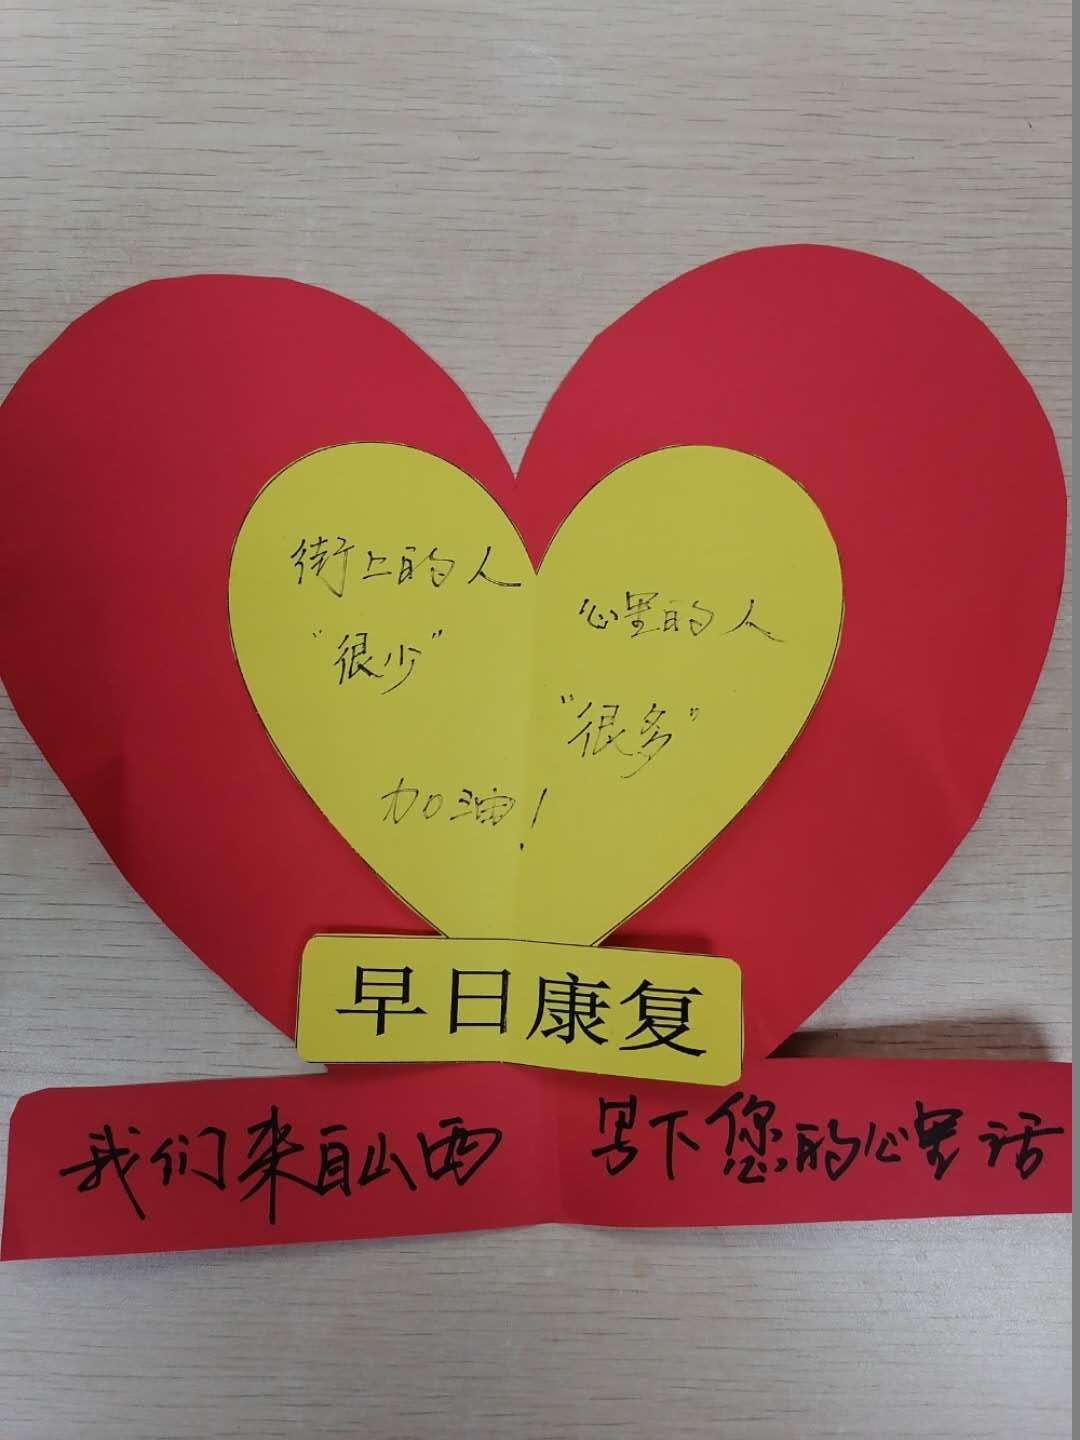 街上的人
"很少"
心里的人
"很多"
加油!
早日康复
我们来自山西 写下您的心里话